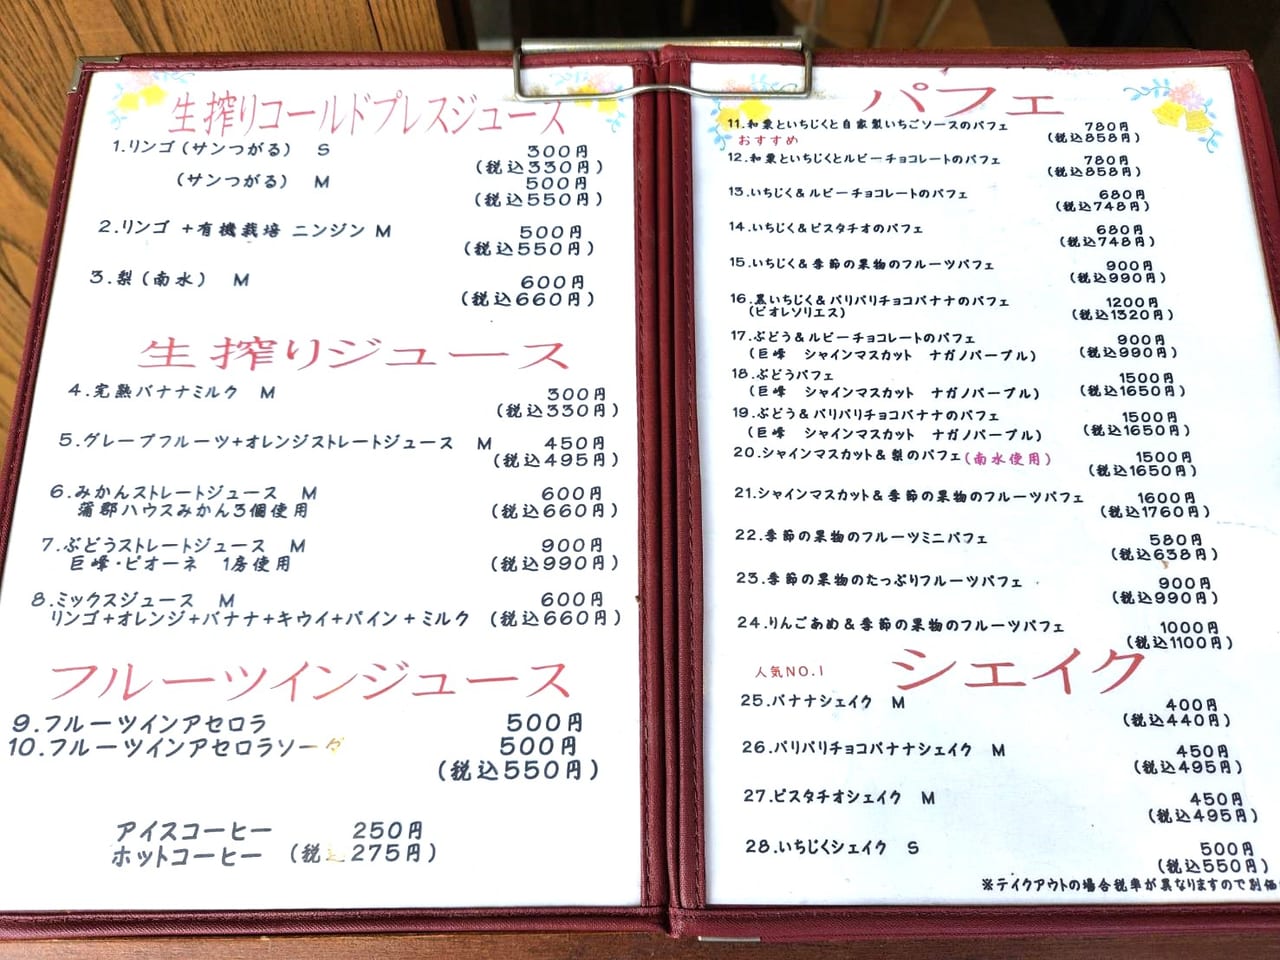 生搾りコールドプレスジュース
1.リンゴ(サンつがる) S 300円
(税込330円)
(サンつがる) M 500円
(税込550円)
2.リンゴ +有機栽培 ニンジン M 500円
(税込550円)
3.梨(南水) M 600円
(税込660円)
生搾りジュース
4.完熟バナナミルク M 300円
(税込330円)
5.グレープフルーツ+オレンジストレートジュース M 450円
(税込495円)
6.みかんストレートジュース M 600円
蒲郡ハウスみかん3個使用 (税込660円)
7.ぶどうストレートジュース M 900円
巨峰・ピオーネ 1房使用 (税込990円)
8.ミックスジュース M 600円
リンゴ+オレンジ+バナナ+キウイ+パイン+ミルク (税込660円)
フルーツインジュース
9.フルーツインアセロラ 500円
10.フルーツインアセロラソーダ 500円
(税込550円)
アイスコーヒー 250円
ホットコーヒー (税 275円)
パフェ
11.和栗といちじくと自家製いちごソースのパフェ 780円
おすすめ (税込858円)
12.和栗といちじくとルビーチョコレートのパフェ 780円
(税込858円)
13.いちじく&ルビーチョコレートのパフェ 680円
(税込748円)
14.いちじく&ピスタチオのパフェ 680円
(税込748円)
15.いちじく&季節の果物のフルーツパフェ 900円
(税込990円)
16.黒いちじく&パリパリチョコバナナのパフェ 1200円
(ビオレソリエス) (税込1320円)
17.ぶどう&ルビーチョコレートのパフェ 900円
(巨峰 シャインマスカット ナガノパープル) (税込990円)
18.ぶどうパフェ 1500円
(巨峰 シャインマスカット ナガノパープル) (税込1650円)
19.ぶどう&パリパリチョコバナナのパフェ 1500円
(巨峰 シャインマスカット ナガノパープル) (税込1650円)
20.シャインマスカット&梨のパフェ(南水使用) 1500円
(税込1650円)
21.シャインマスカット&季節の果物のフルーツパフェ 1600円
(税込1760円)
22.季節の果物のフルーツミニパフェ 580円
(税込638円)
23.季節の果物のたっぷりフルーツパフェ 900円
(税込990円)
24.りんごあめ&季節の果物のフルーツパフェ 1000円
(税込1100円)
人気NO.1 シェイク
25.バナナシェイク M 400円
(税込440円)
26.パリパリチョコバナナシェイク M 450円
(税込495円)
27.ピスタチオシェイク M 450円
(税込495円)
28.いちじくシェイク S 500円
(税込550円)
※テイクアウトの場合税率が異なりますので別価